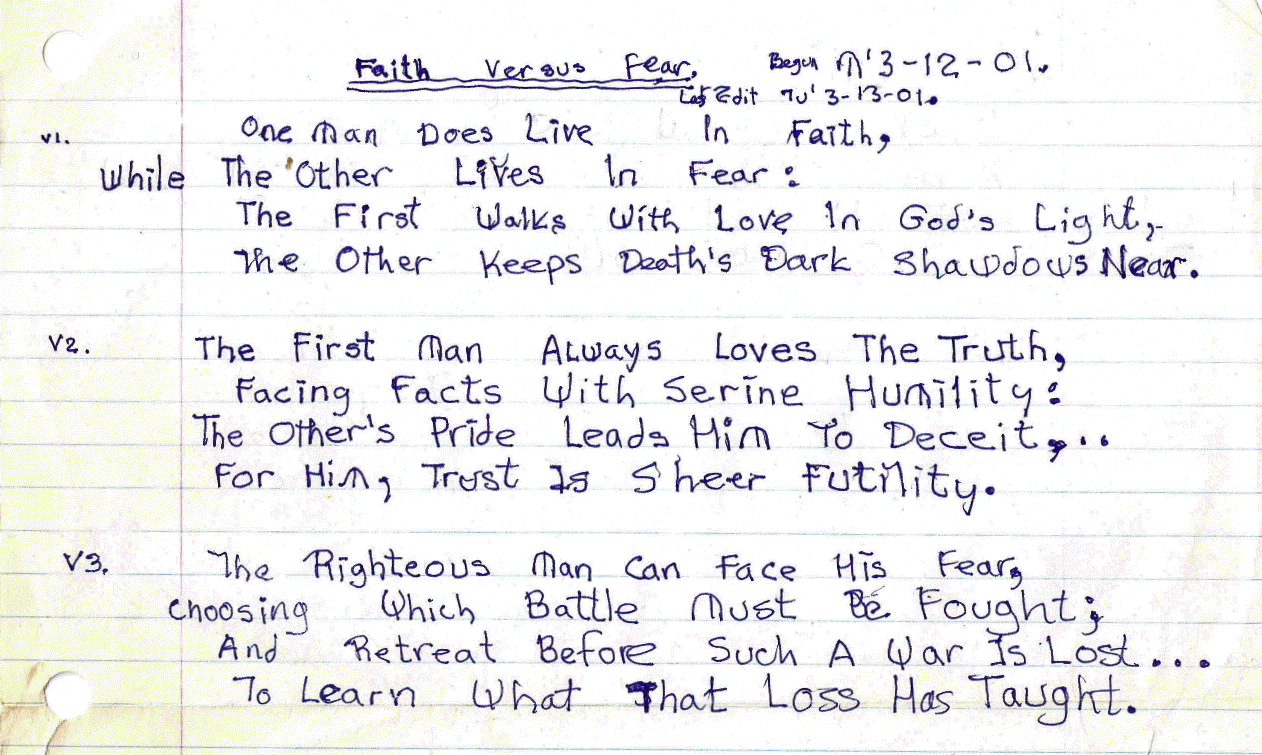 Faith Versus Fear. Begun M' 3-12-01.
Last Edit Tu' 3-13-01.
v1. One Man Does Live In Faith,
While The Other Lives In Fear:
The First Walks With Love In God's Light,-
The Other Keeps Death's Dark Shawdows Near.
V2. The First Man Always Loves The Truth,
Facing Facts With Serine Humility:
The Other's Pride Leads Him To Deceit,..
For Him, Trust Is Sheer Futility.
V3. The Righteous Man Can Face His Fear,
Choosing Which Battle Must Be Fought;
And Retreat Before Such A War Is Lost...
To Learn What That Loss Has Taught.